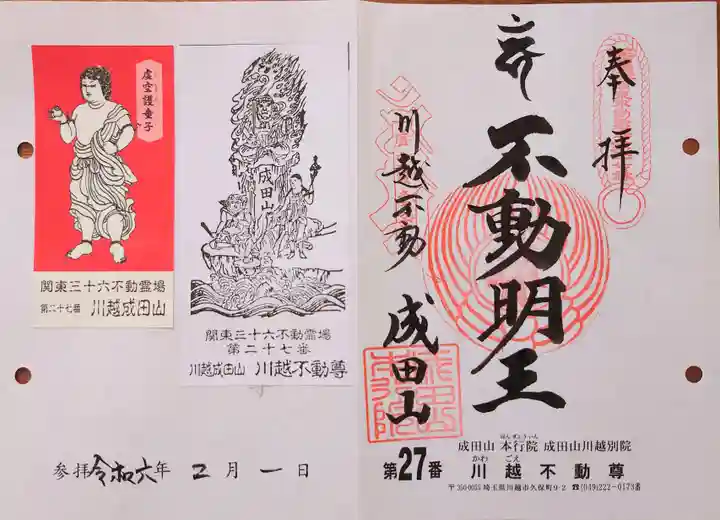 虚空護童子
関東三十六不動霊場
第二十七番 川越成田山
成田山
関東三十六不動霊場
第二十七番
川越成田山 川越不動尊
参拝令和六年 二月一日
奉拝
不動明王
川越不動
成田山
ほんぎょういん
成田山 本行院 成田山川越別院
かわ ごえ
第27番 川越不動尊
〒350-0055 埼玉県川越市久保町9-2 ☎(049)222-0173番